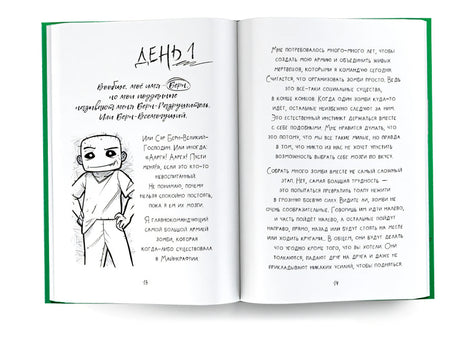 ДЕНЬ 1
Вообще, моё имя – Берн,
но мои подданные
называют меня Берн-Разрушитель.
Или Берн-Всемогущий.
Или Сэр Берн-Великий-
Господин. Или иногда:
«Ааргх! Ааргх! Пусти
меня», если это кто-то
невоспитанный.
Не понимаю, почему
нельзя спокойно постоять,
пока я ем их мозги.
Я главнокомандующий
самой большой армией
зомби, которая
когда-либо существовала
в Майнкрафтии.
13
Мне потребовалось много-много лет, чтобы
создать мою армию и объединить живых
мертвецов, которыми я командую сегодня.
Считается, что организовать зомби просто. Ведь
это всё-таки социальные существа,
в конце концов. Когда один зомби куда-то
идёт, остальные обычно следуют за ним.
Это естественный инстинкт держаться вместе
с себе подобными. Мне нравится думать, что
это потому, что мы все такие милые, но, может,
дело в том, что никто из нас не хочет упустить
возможность выбрать себе мозги по вкусу.
Собрать много зомби вместе не самый сложный
этап. Нет, самая большая трудность —
это попытаться превратить толпу нежити
в грозную боевую силу. Видите ли, зомби не
очень сообразительные. Говоришь им идти налево,
и часть пойдёт налево, а остальные пойдут
направо, прямо, назад или будут стоять на месте
или ходить кругами. В общем, они будут делать
что угодно кроме того, что вы хотели. Они
толкаются, падают друг на друга и даже не
прикладывают никаких усилий, чтобы подняться.
14